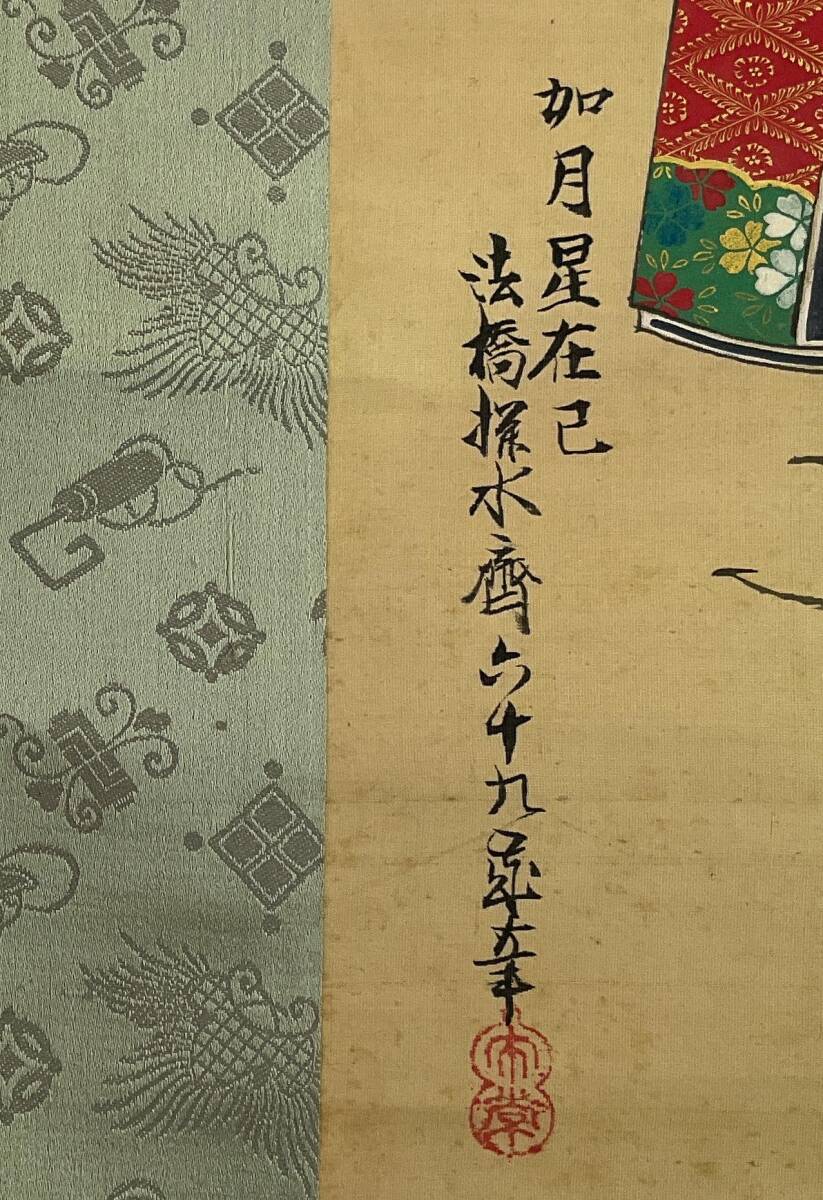 加月星在己
法橋探水齊六十九歳筆